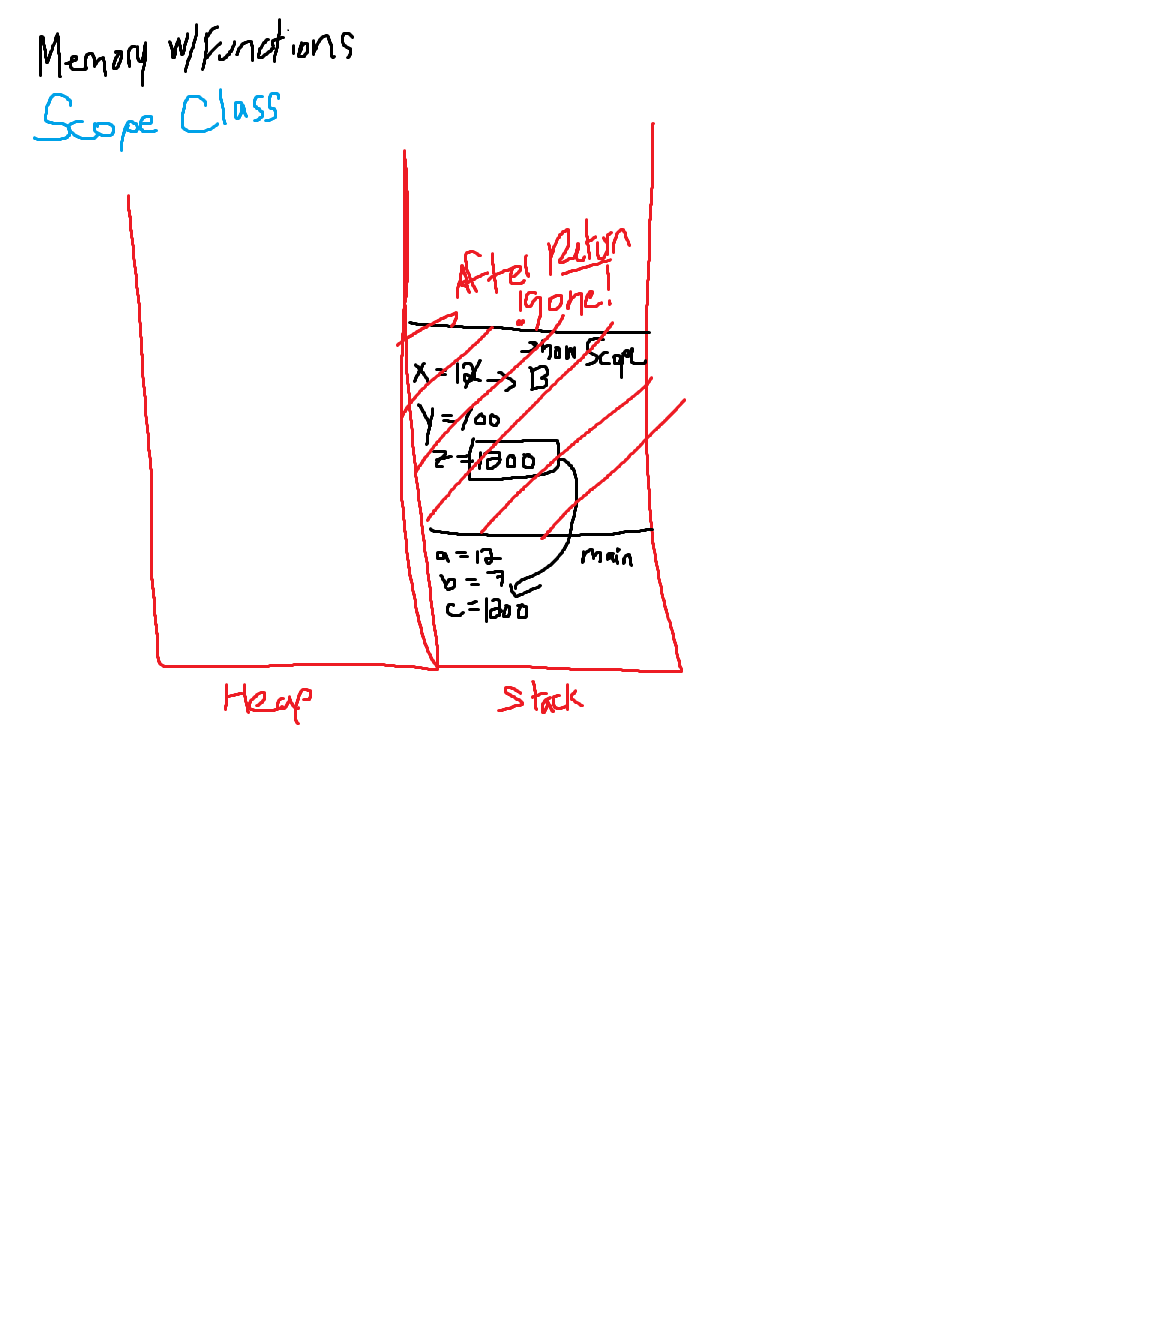 Memory w/Functions
Scope Class
After Return
gone!
show Scope
X = 12 -> 13
Y = 100
Z = 1300
a = 12
main
b = 7
c = 1300
Heap
Stack